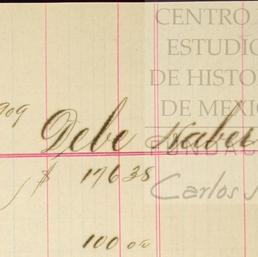 CENTRO
ESTUDIO
DE HISTO
DE MEXI
909
Debe Haber
$ 17638
100 00
FUNDA
Carlos